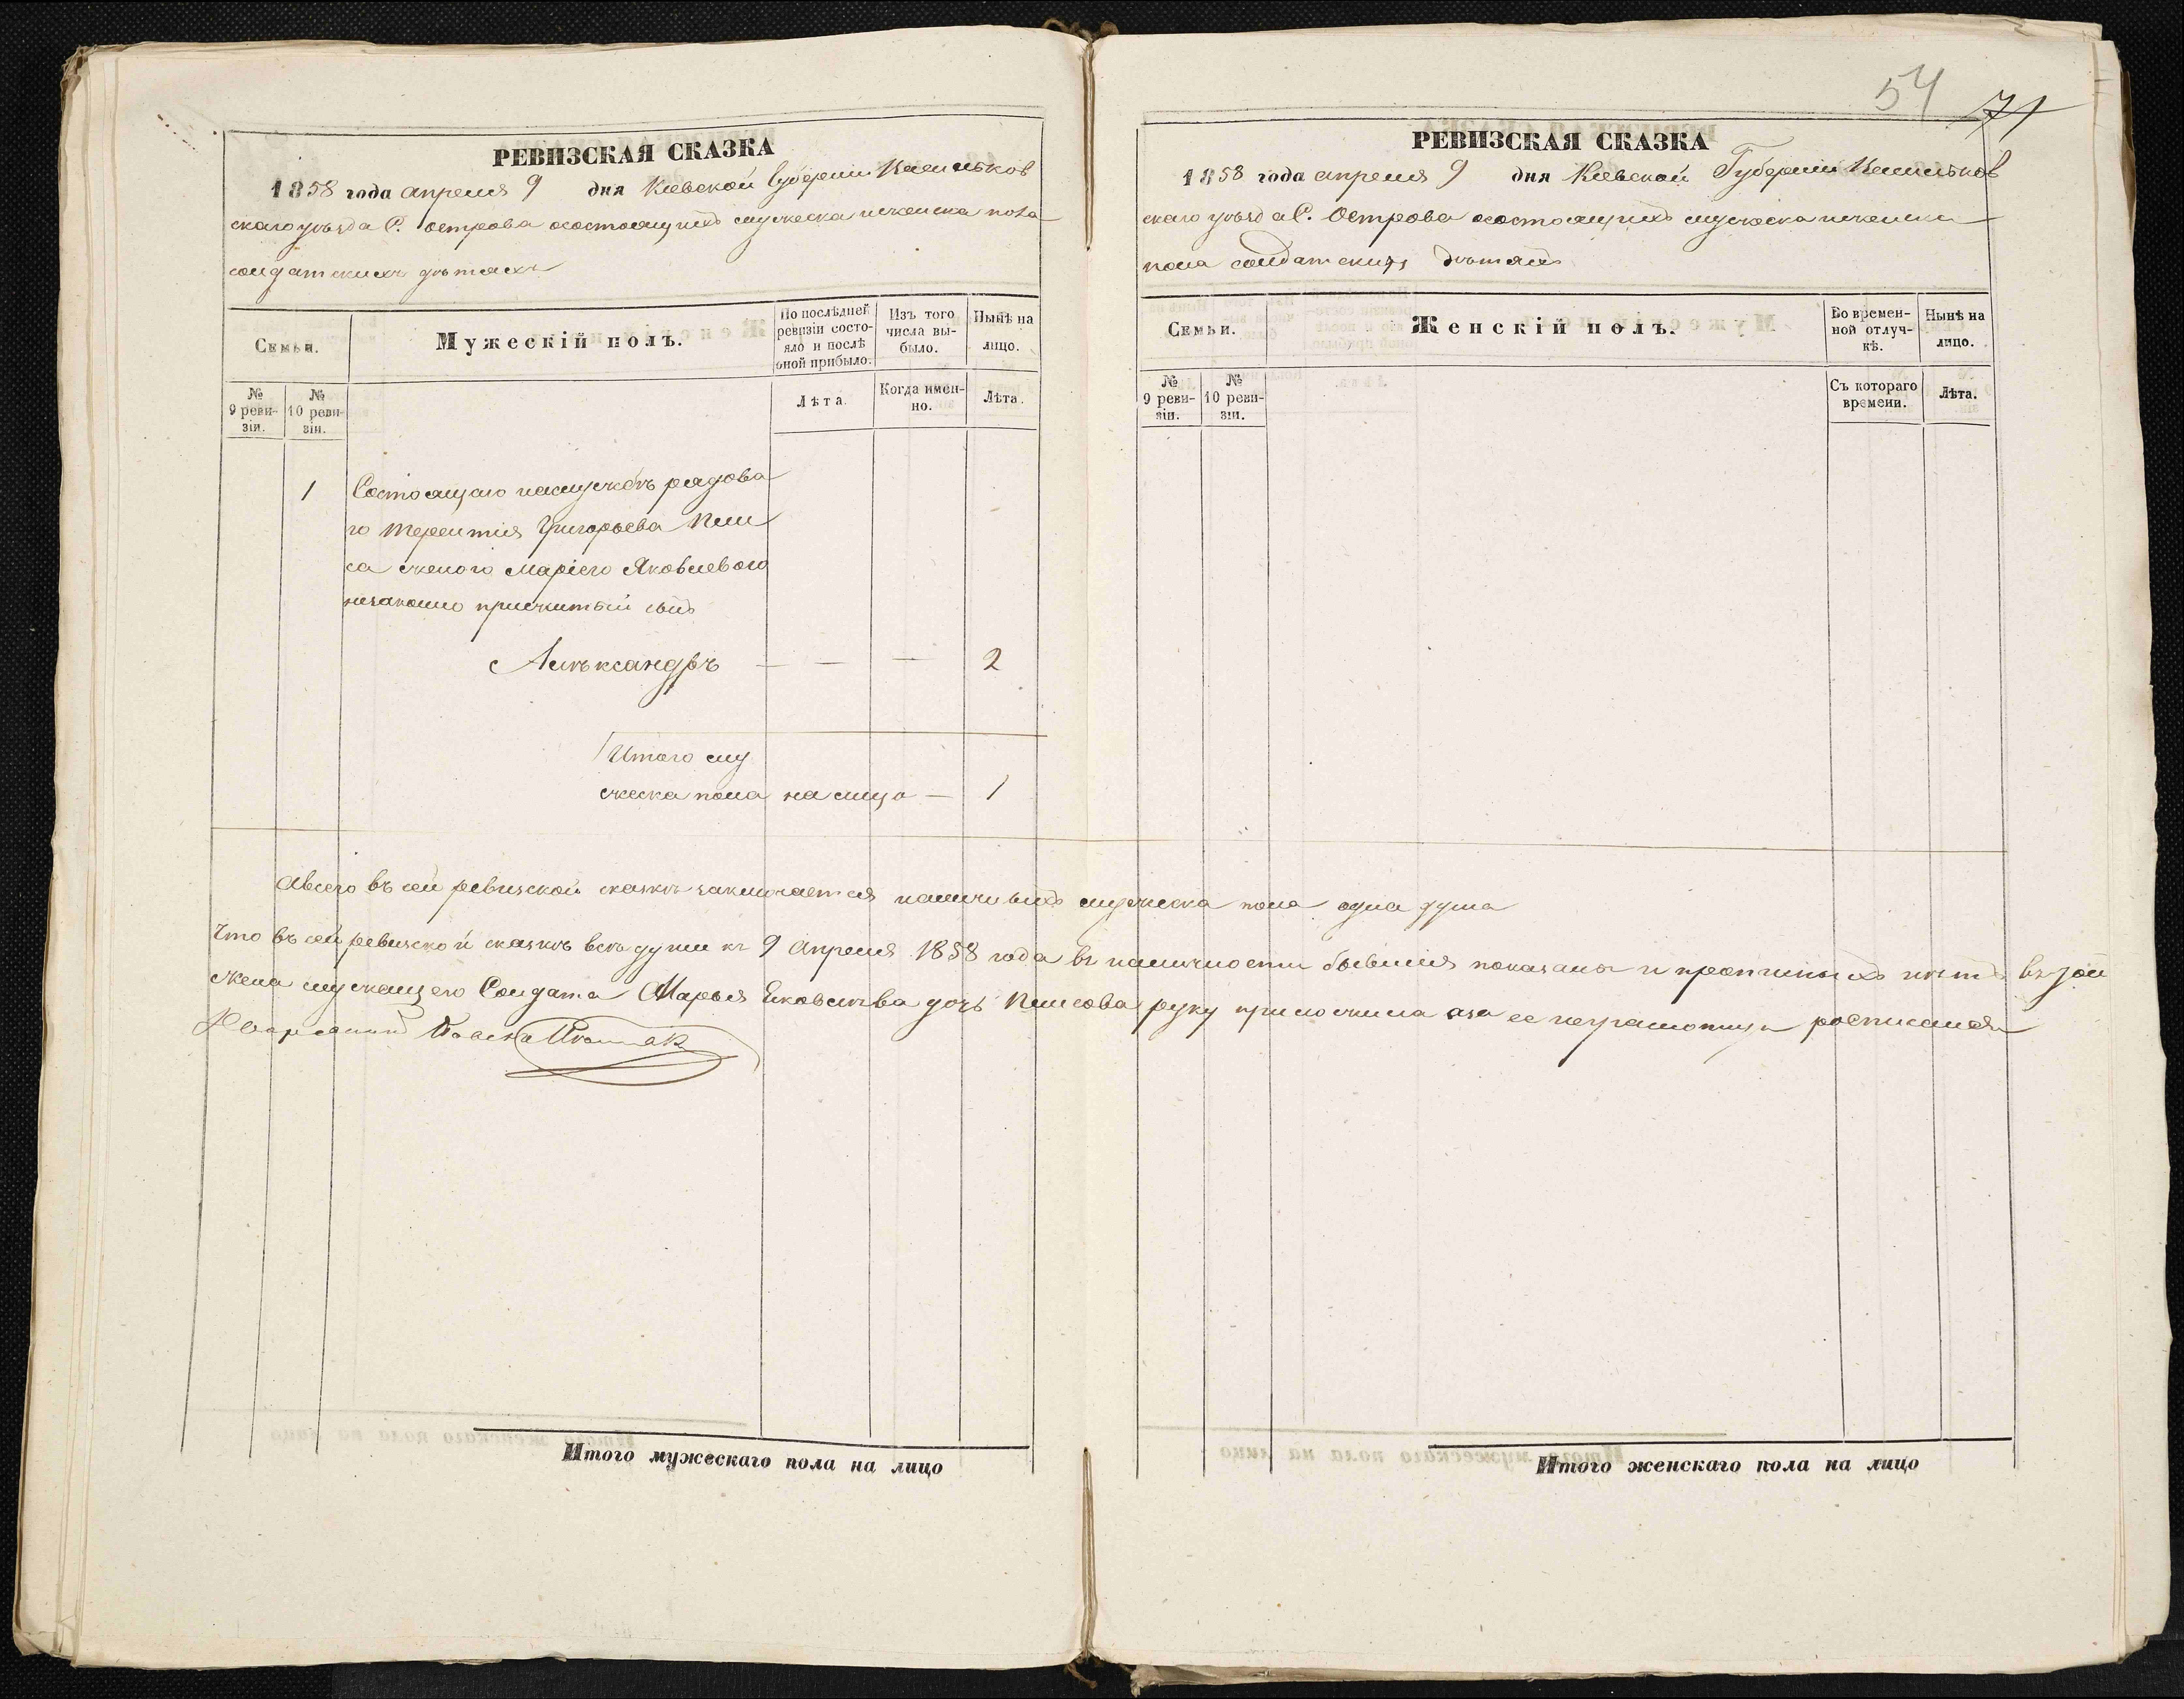 РЕВИЗСКАЯ СКАЗКА
1858 года апреля 9 дня Киевской Губернии Васильков
скаго уѣзда С. Острова осостоящихъ мужеска иженска пола
солдатскихъ дѣтяхъ
Семьи.
Мужескій полъ.
По послѣдней ревизіи состояло и послѣ оной прибыло.
Изъ того числа выбыло.
Нынѣ на лицо.
№ 9 ревизіи.
№ 10 ревизіи.
Лѣта.
Когда именно.
Лѣта.
1 Состоящаго наслужбѣ рядова
го Терентия Григорьева
са женою Маріею Яковлевою
незаконно прижитый сынъ
Алѣксандръ — — — 2
Итого му
жеска пола на лицо — 1
Авсего въ сей ревизской сказкѣ заключается наличныхъ мужеска пола одна душа
Что въ сей ревизской сказкѣ всѣ души къ 9 апреля 1858 года въ наличности бывшия показаны и прописныхъ нѣтъ въ той
жена служащего Солдата Марья Яковлѣва дочь руку приложила аза ее неграмотную росписался
РЕВИЗСКАЯ СКАЗКА
54
71
1858 года апреля 9 дня Киевской Губернии Васильков
скаго уѣзда С. Острова осостоящихъ мужеска иженска
пола солдатскихъ дѣтяхъ
Семьи.
Женскій полъ.
Во временной отлучкѣ.
Нынѣ на лицо.
№ 9 ревизіи.
№ 10 ревизіи.
Съ котораго времени.
Лѣта.
Итого мужескаго пола на лицо
Итого женскаго пола на лицо